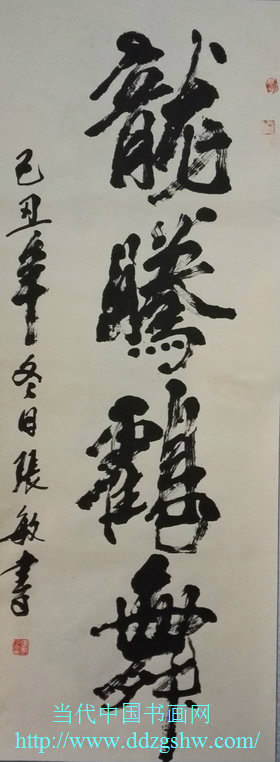 龍騰鶴舞
己丑年冬日張敏書
当代中国书画网
http://www.ddzgshw.com/